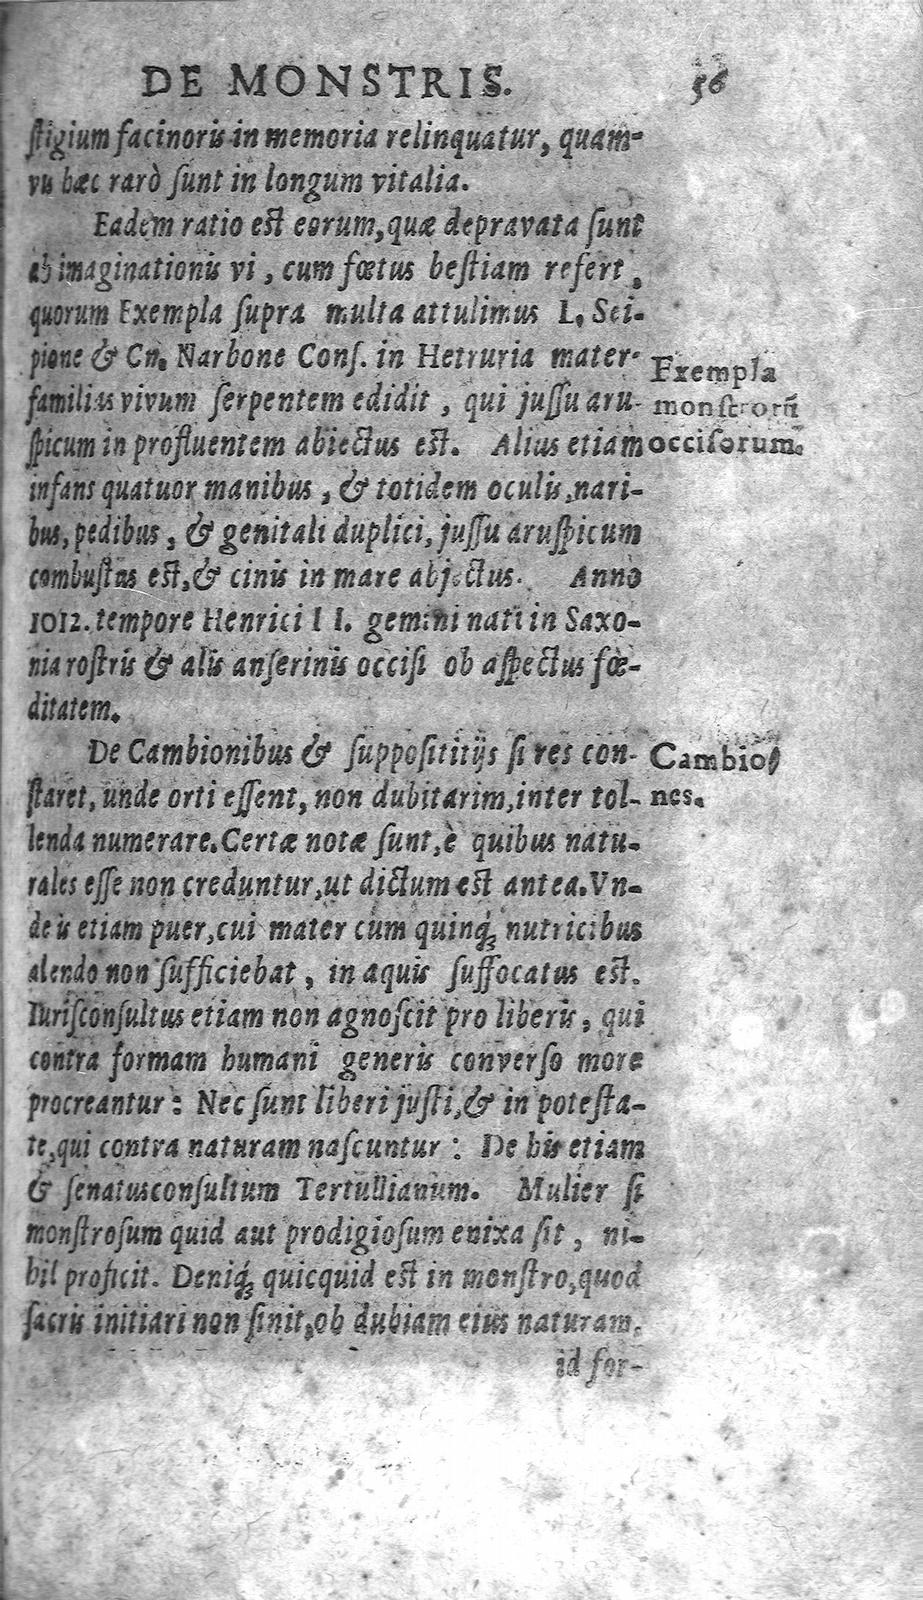 DE MONSTRIS. 56
ſtigium facinoris in memoria relinquatur, quam-
vis hæc rarò ſunt in longum vitalia.
Eadem ratio est eorum, quæ depravata ſunt
ab imaginationis vi, cum fœtus beſtiam refert,
quorum Exempla ſupra multa attulimus L. Sci-
pione & Cn. Narbone Conſ. in Hetruria mater-
familias vivum ſerpentem edidit, qui juſſu aru-
ſpicum in profluentem abiectus est. Alius etiam
infans quatuor manibus, & totidem oculis, nari-
bus, pedibus, & genitali duplici, juſſu aruſpicum
combuſtus est, & cinis in mare abjectus. Anno
1012. tempore Henrici II. gemini nati in Saxo-
nia roſtris & alis anſerinis occiſi ob aſpectus fœ-
ditatem.
Exempla
monſtrorũ
occiſorum.
De Cambionibus & ſuppoſititijs ſi res con-
ſtaret, unde orti eſſent, non dubitarim, inter tol-
lenda numerare. Certæ notæ ſunt, è quibus natu-
rales eſſe non creduntur, ut dictum est antea. Vn-
de is etiam puer, cui mater cum quinq́; nutricibus
alendo non ſufficiebat, in aquis ſuffocatus est.
Iuriſconſultus etiam non agnoſcit pro liberis, qui
contra formam humani generis converſo more
procreantur: Nec ſunt liberi juſti, & in poteſta-
te, qui contra naturam naſcuntur: De his etiam
& ſenatusconſultum Tertullianum. Mulier ſi
monſtroſum quid aut prodigioſum enixa ſit, ni-
hil proficit. Deniq́; quicquid est in monſtro, quod
ſacris initiari non ſinit, ob dubiam eius naturam,
Cambio-
nes.
id for-